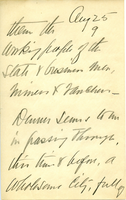 them the Aug 25
9
working people of the
State & business men,
miners & ranchers—
Denver seems to me
in passing through,
this time & before, a
wholesome City, full of